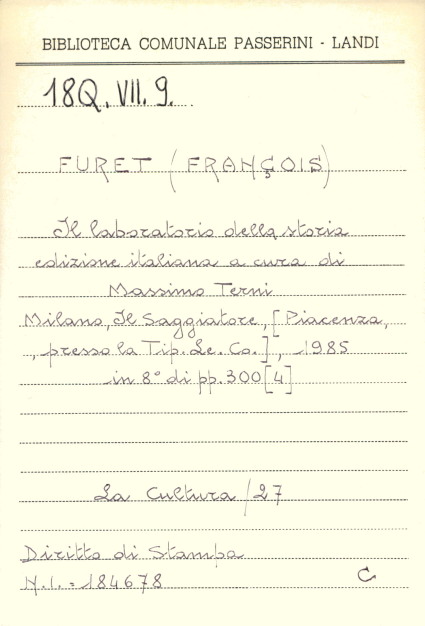 BIBLIOTECA COMUNALE PASSERINI - LANDI
18Q. VII. 9.
FURET (FRANÇOIS)
Il laboratorio della storia
edizione italiana a cura di
Massimo Terni
Milano, Il Saggiatore, [Piacenza,
, presso la Tip. Le. Co.], 1985
in 8° di pp. 300 [4]
La Cultura / 27
Diritto di Stampa
N.I. = 184678 C